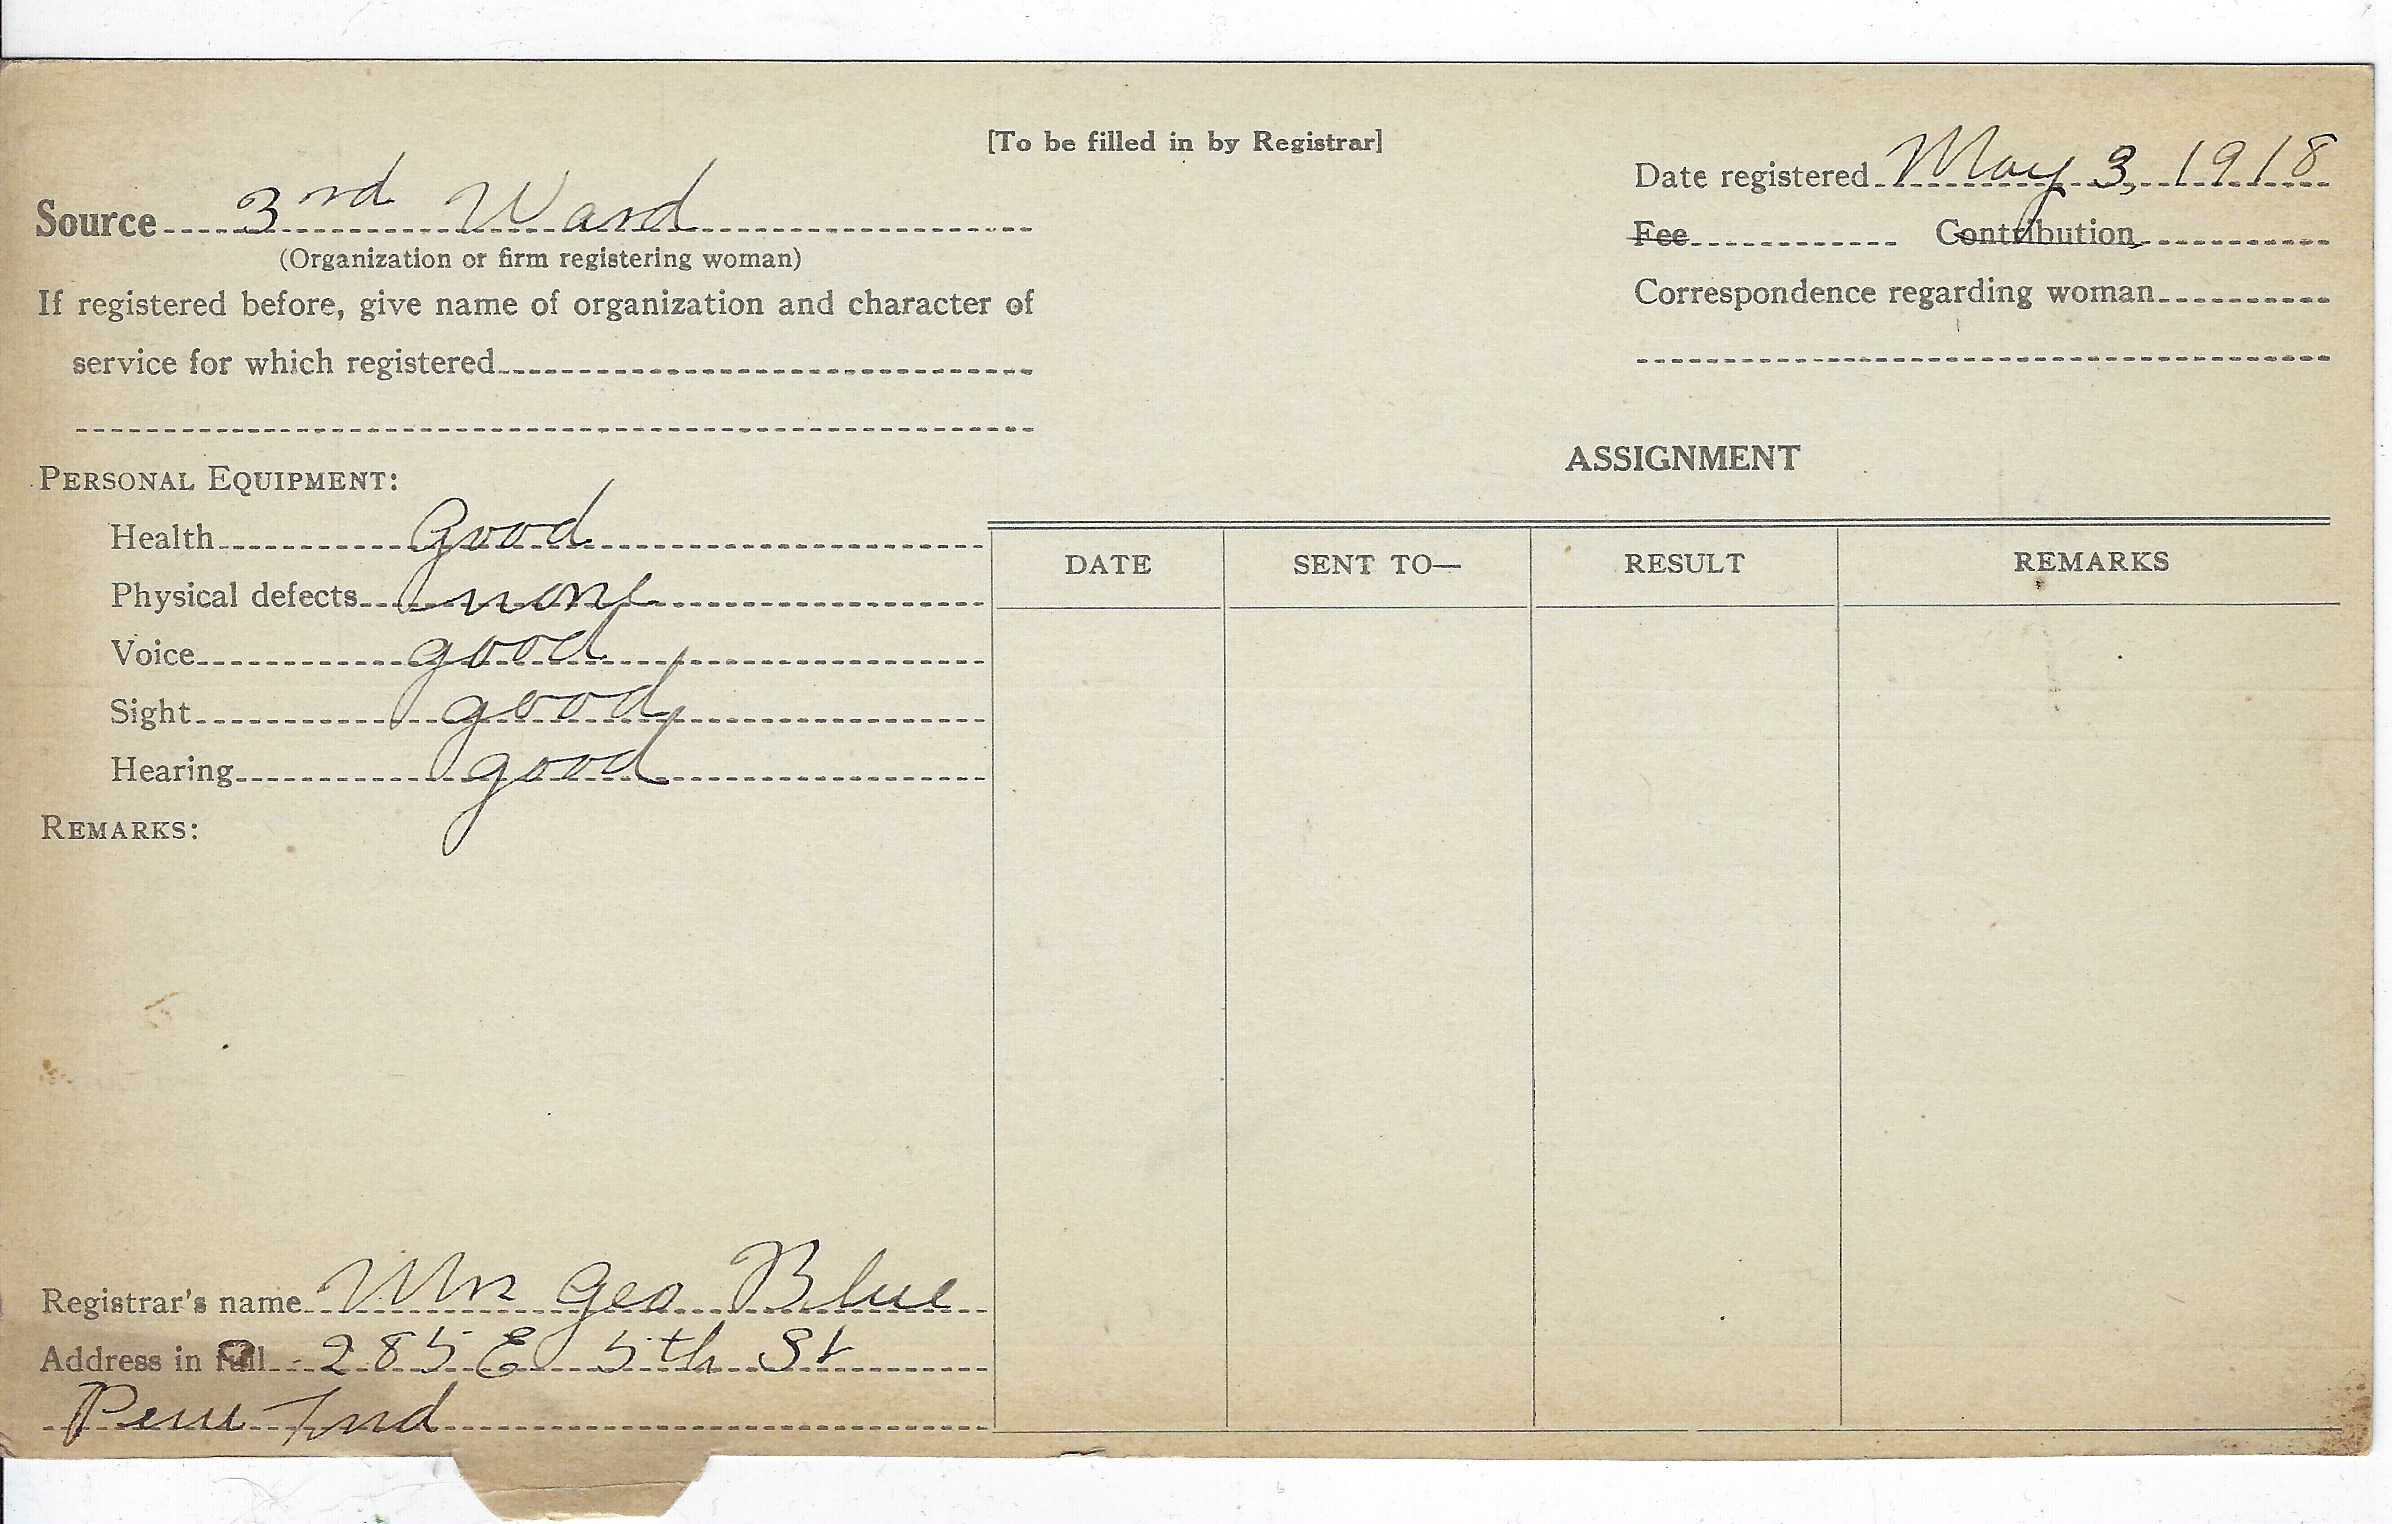 [To be filled in by Registrar]
Source 3rd Ward
(Organization or firm registering woman)
If registered before, give name of organization and character of
service for which registered
Date registered May 3, 1918
Fee Contribution
Correspondence regarding woman
PERSONAL EQUIPMENT:
Health Good
Physical defects none
Voice good
Sight good
Hearing good
REMARKS:
ASSIGNMENT
DATE SENT TO— RESULT REMARKS
Registrar's name Mrs Geo Blue
Address in full 285 E 5th St
Peru Ind